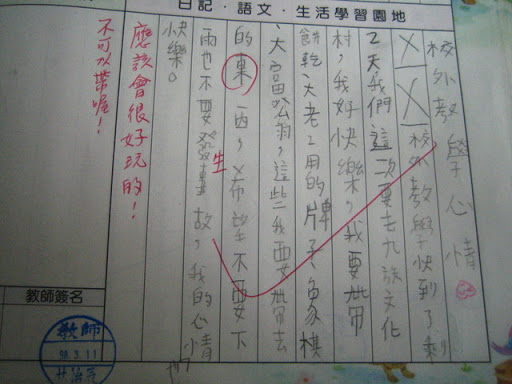 日記‧語文‧生活學習園地
校外教學心情
校外教學快到了剩
2天我們這次要去九族文化
村,我好快樂,我要帶
餅乾、大老2用的牌子、象棋
、大富翁,這些我要帶去
的東西,希望不要下
雨也不要發生事故,我的心情
快樂。
應該會很好玩的!
不可以帶喔!
教師簽名
教師
98.3.11